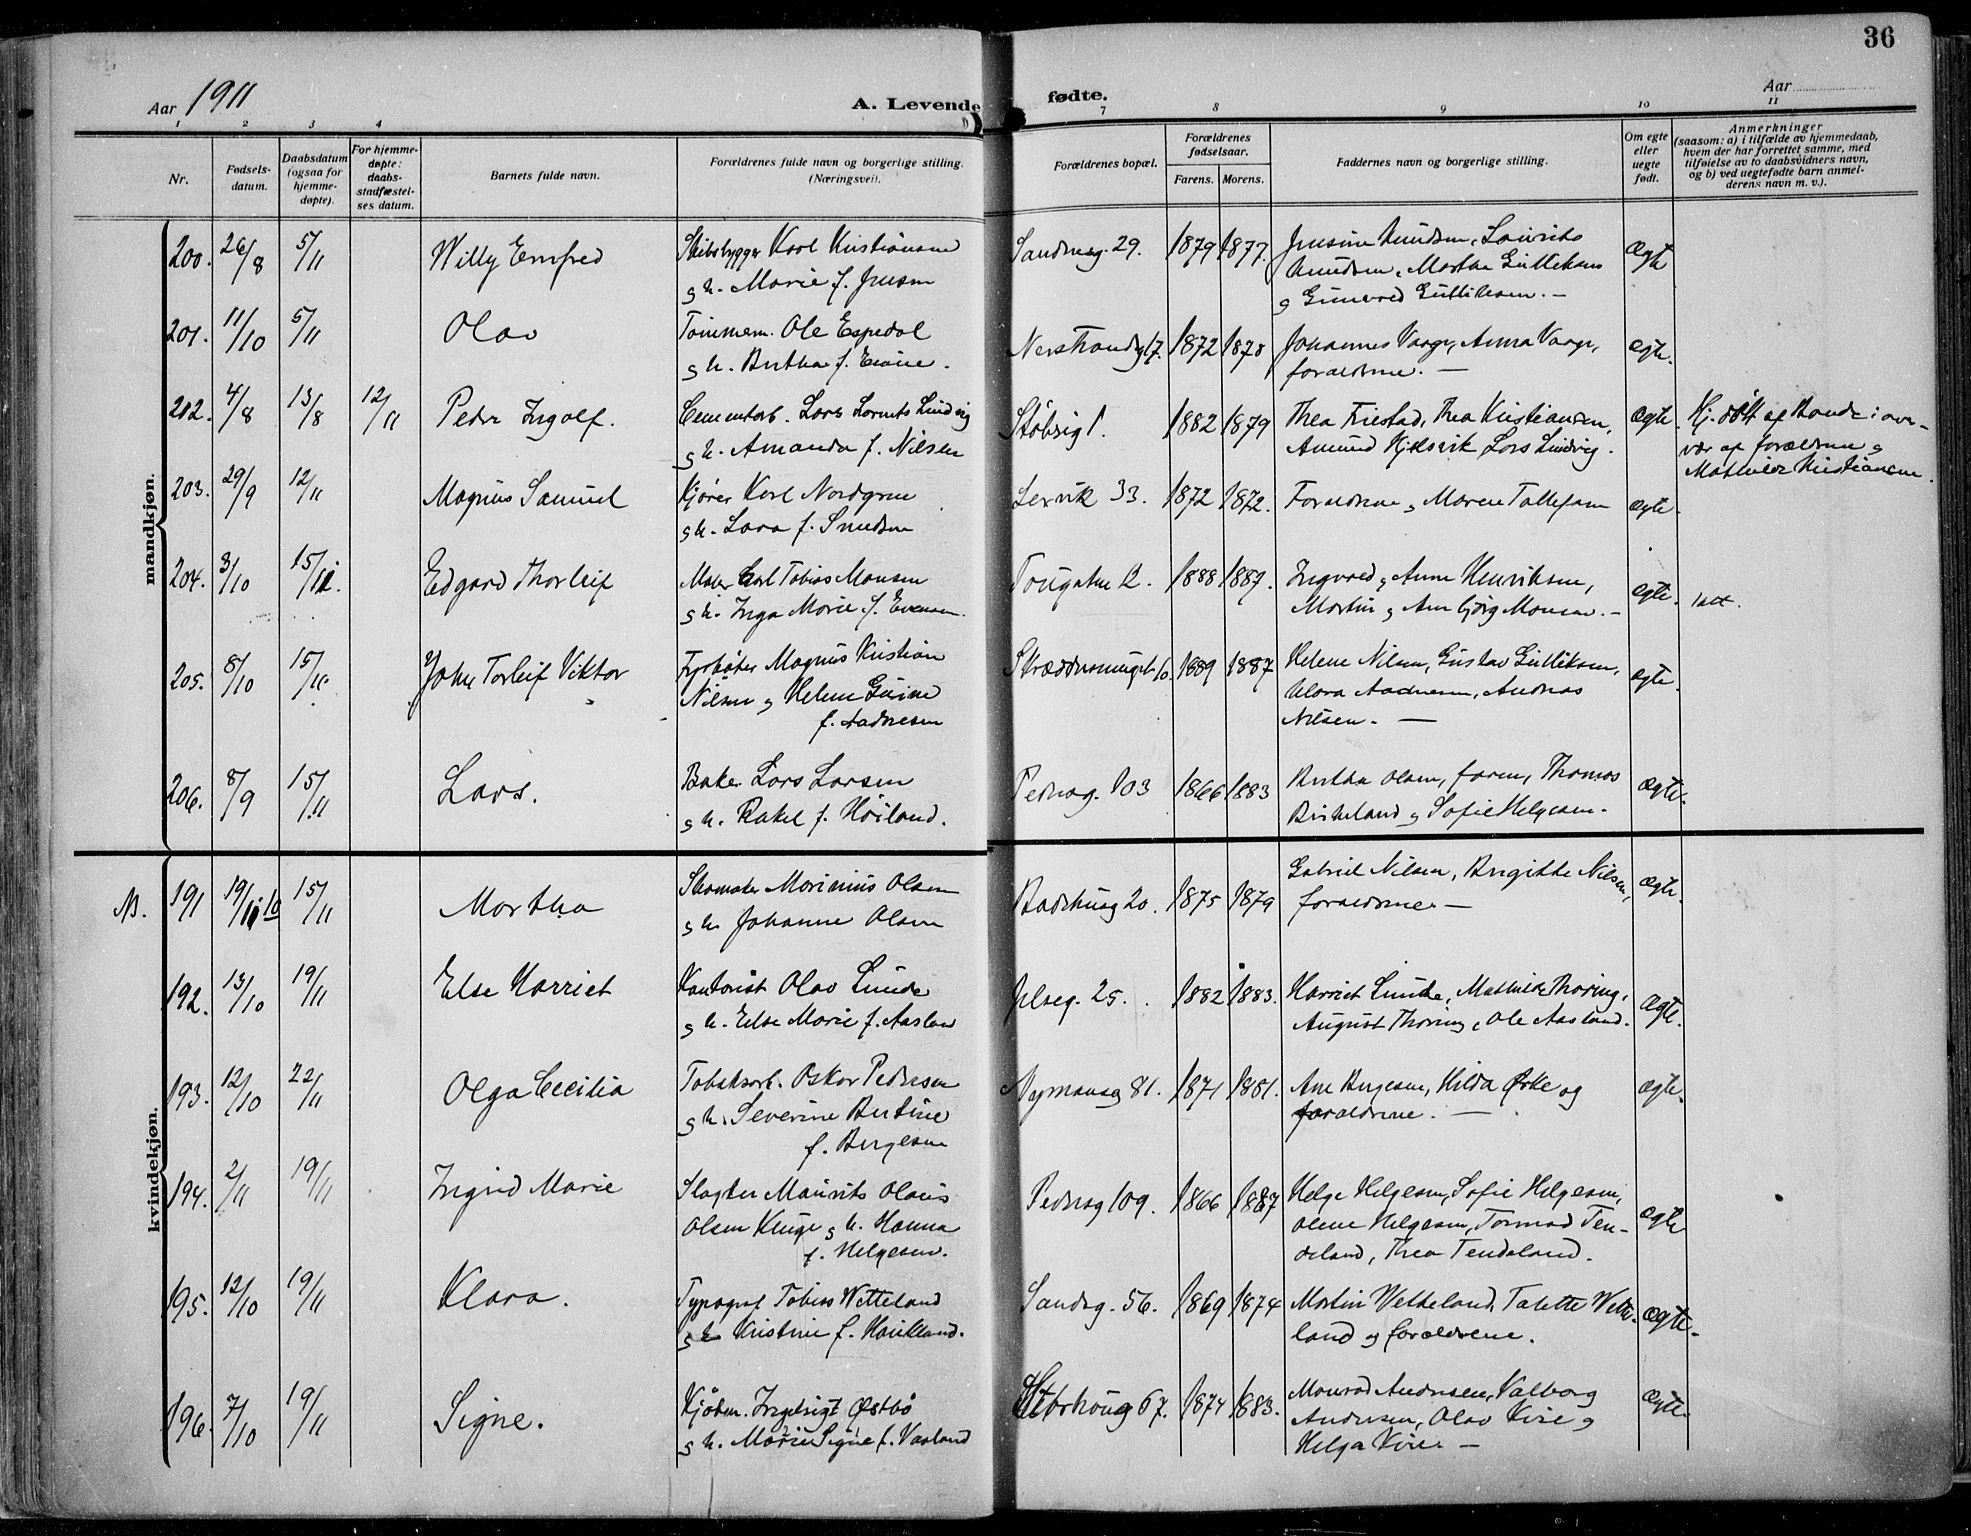 36
Aar 1911
A. Levende fødte.
Aar
1 2 3 4 7 8 9 10 11
Nr.
Fødsels-
datum.
Daabsdatum
(ogsaa for
hjemme-
døpte).
For hjemme-
døpte:
daabs-
stadfæstel-
ses datum.
Barnets fulde navn.
Forældrenes fulde navn og borgerlige stilling.
(Næringsvei).
Forældrenes bopæl.
Forældrenes
fødselsaar.
Farens. Morens.
Faddernes navn og borgerlige stilling.
Om egte
eller
uegte
født.
Anmerkninger
(saasom: a) i tilfælde av hjemmedaab,
hvem der har forrettet samme, med
tilføielse av to daabsvidners navn,
og b) ved uegtefødte barn anmel-
derens navn m. v.).
mandkjøn.
200. 26/8 5/11 Willy Ernfred
Skibsbygger Karl Kristiansen
g h. Marie f. Jensen
29. 1879 1877.
Knudsen, Laurits
Knudsen, Martha Gulliksen
g Gunvord Gulliksen. —
ægte
201. 11/10 5/11 Olav
Tømmerm. Ole Espedal
g h. Bertha f.
17. 1872 1878
Johannes Vaage, Anna Vaage,
forældrene. —
ægte.
202. 4/8 13/8 12/11 Peder Ingolf.
Cementarb. Lars Lindvig
g h. Amanda f. Nilsen
1. 1882 1879
Thea Friestad, Thea Kristiansen,
Amund Lars Lindvig.
ægte.
Hj. døbt af i over-
vær af forældrene g
Mathilde Kristiansen.
203. 29/9 12/11 Magnus Samuel
Kjører Karl Nordgren
g h. Lara f.
Lervik 33. 1872 1872.
Forældrene g Maren Tollefsen
ægte.
204. 3/10 15/11. Edgard Thorleif
Maler Carl Tobias Monsen
g h. Inga Marie f. Evensen.
2. 1888 1889.
Ingvald g Anne Henriksen,
Martin g Monsen. —
ægte.
205. 8/10 15/11. John Torleif Viktor
Fyrbøter Magnus Kristian
Nilsen g Helene Gurine
f. Aadnesen
1889 1887
Helene Nilsen, Gustav Gulliksen,
Klara Aadnesen, Andreas
Nilsen. —
ægte.
206. 8/9 15/11 Lars.
Baker Lars Larsen
g h. Rakel f. Høiland.
Pedersg. 103 1866 1883
Bertha Olsen, faren, Thomas
Birkeland g Sofie Helgesen.
ægte.
kvindekjøn.
N. 191 19/11 10 15/11 Martha
Skomaker Marinius Olsen
g h. Johanne Olsen
20. 1875 1879
Gabriel Nilsen, Birgitte Nilsen,
forældrene. —
ægte.
192. 13/10 19/11 Else Harriet
Kontorist Olav Lunde
g h. Else Marie f. Aasland
25. 1882 1883.
Harriet Lunde, Mathilde Thoring,
August Thoring, Ole Aasland.
ægte.
193. 12/10 22/11 Olga Cecilia
Tobaksarb. Oskar Pedersen
g h. Severine Bertine
f. Bergesen
Nymansg 81. 1871 1881.
Ane Bergesen, Hilda Ørke og
forældrene. —
ægte.
194. 2/11 19/11 Ingrid Marie
Slagter Maurits Olaus
Olsen Kluge g h. Hanna
f. Helgesen.
Pedersg 109. 1866 1887
Helge Helgesen, Sofie Helgesen,
Olene Helgesen, Tormod Ten-
deland, Thea Tendeland.
ægte
195. 12/10 19/11 Klara.
Typograf Tobias Wetteland
g h Kristine f. Haukland.
Sandsg. 56. 1869 1874
Martin Wetteland, Talette Wette-
land g forældrene.
ægte.
196. 7/10 19/11 Signe.
Kjøbm. Ingebrigt Østbø
g h. Marie Signe f. Vasland
67. 1874 1883.
Monrad Andersen, Valborg
Andersen, Olav Vire g
Helga Vire —
ægte.